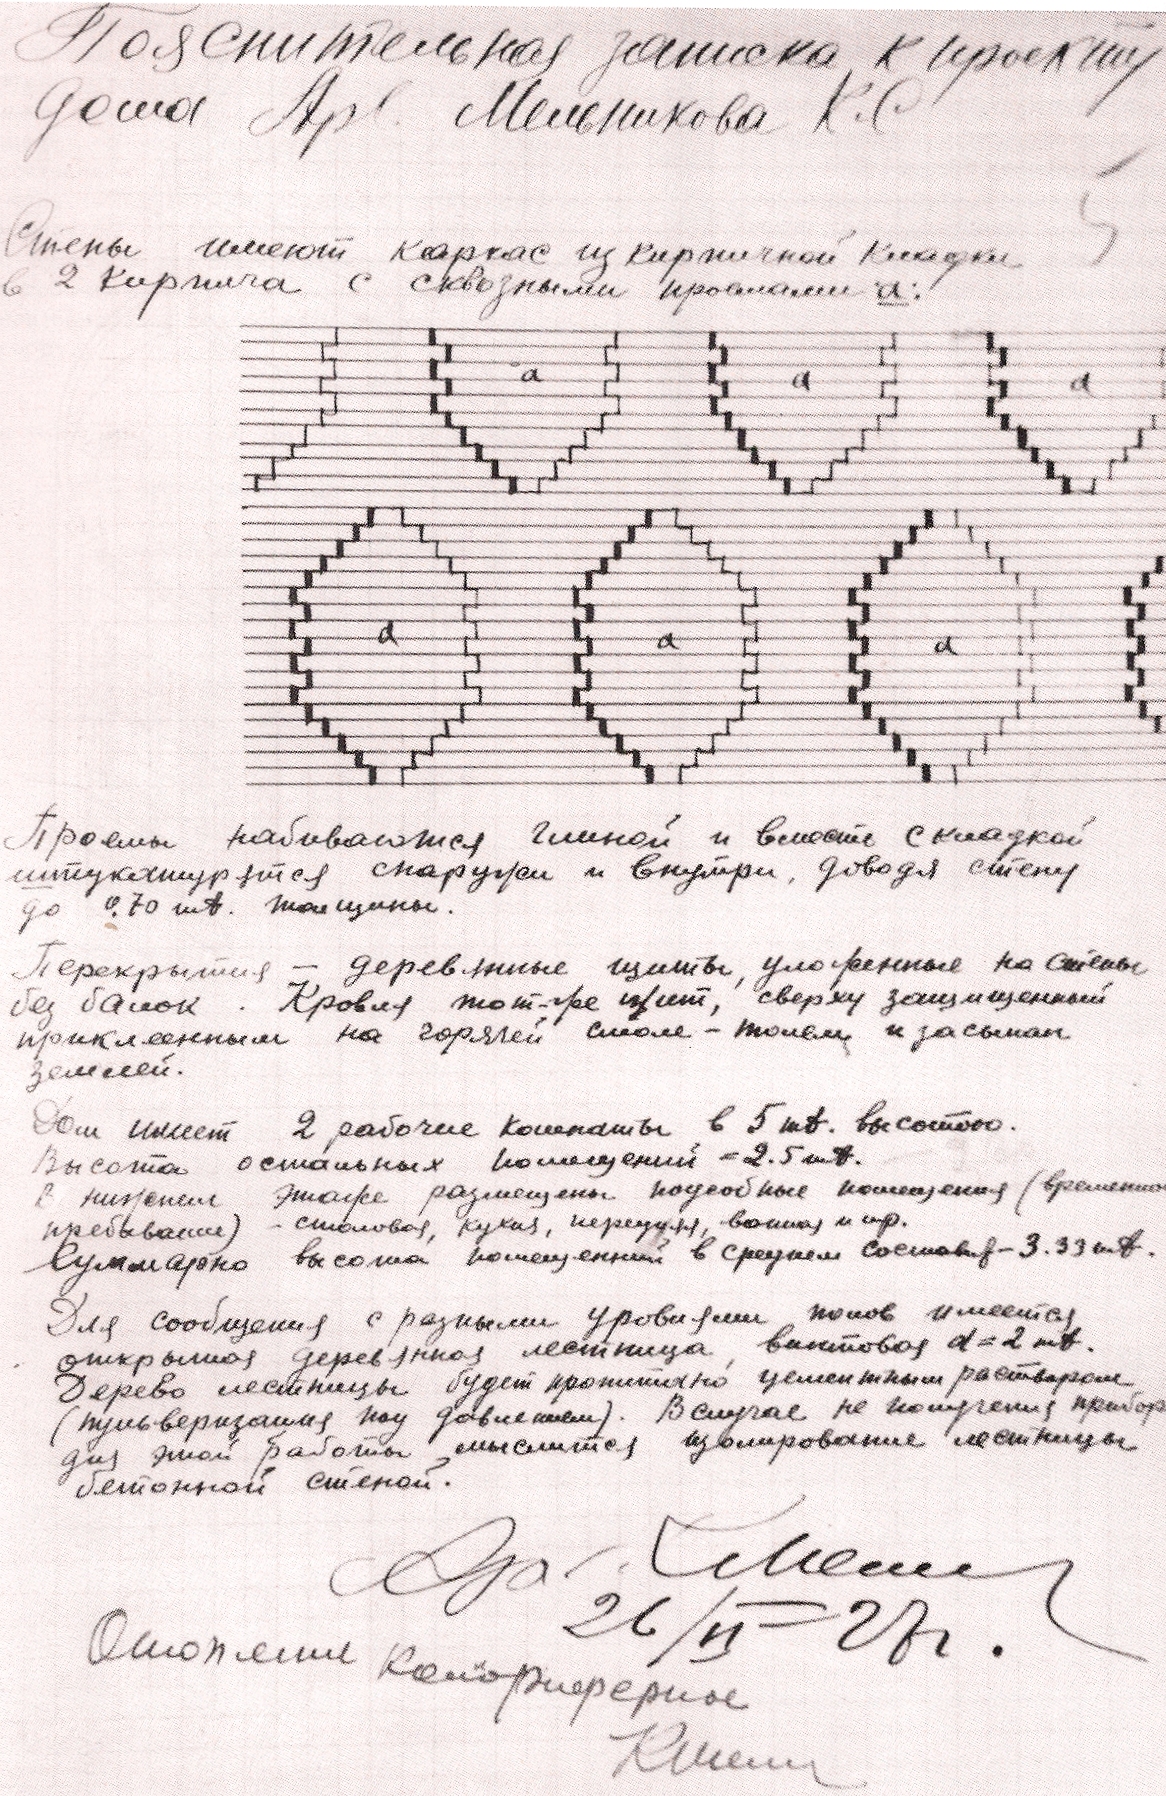 Пояснительная записка к проекту
дома Арх. Мельникова К.С
5
Стены имеют каркас из кирпичной кладки
в 2 кирпича с сквозными проемами "а":
а а а
а а а
Проемы набиваются глиной и вместе с кладкой
штукатурятся снаружи и внутри, доводя стену
до 0.70 mt. толщины.
Перекрытия – деревянные щиты, уложенные на стены
без балок. Кровля тот-же щит, сверху защищенный
приклеенным на горячей смоле – толем и засыпан
землей.
Дом имеет 2 рабочие комнаты в 5 mt. высотою.
Высота остальных помещений = 2.5 mt.
В нижнем этаже размещены подсобные помещения (временное
пребывание) – столовая, кухня, передняя, ванная и пр.
Суммарно высота помещений в среднем составл – 3.33 mt.
Для сообщения с разными уровнями полов имеется
открытая деревянная лестница, винтовая d = 2 mt.
Дерево лестницы будет пропитано цементным раствором
(пульверизация под давлением). В случае не получения прибор
для этой работы мыслится изолирование лестницы
бетонной стеной.
Арх. КМельн
26/II – 27г.
Отопление калориферное
КМельн